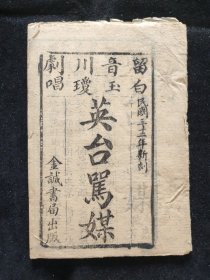 留白民國三十二年新刻
音玉
川瓊
劇唱
英台罵媒
金誠書局出版